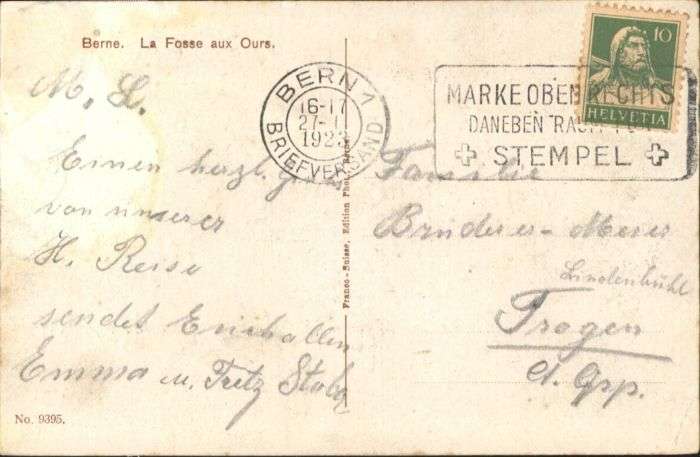 Berne. La Fosse aux Ours.
M. L.
Einen herzl.
von unserer
H. Reise
sendet Euch allen
Emma u. Fritz
No. 9395.
Franco-Suisse, Edition Phot. Berne
BERN 1
16-17
1923
BRIEFVERSAND
MARKE OBEN RECHTS
DANEBEN RAUM
STEMPEL
10
HELVETIA
Familie
Lindenbühl
Trogen